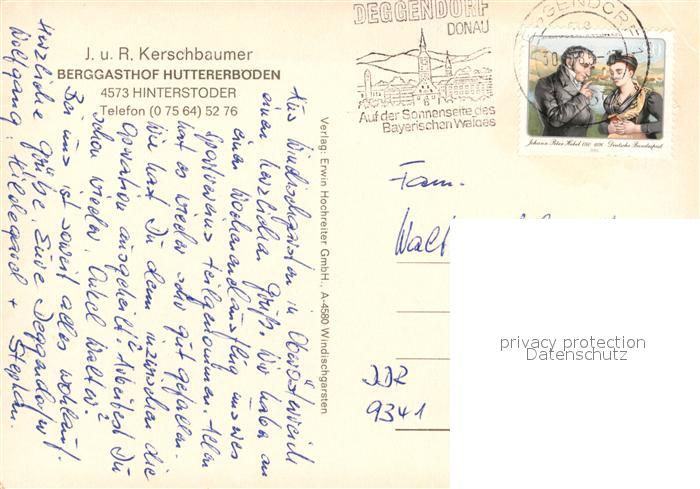 J. u. R. Kerschbaumer
BERGGASTHOF HUTTERERBÖDEN
4573 HINTERSTODER
Telefon (0 75 64) 52 76
Aus Windischgarsten in Oberösterreich
einen herzlichen Gruß. Wir haben an
einem Wochenendausflug unseres
Sportvereins teilgenommen. Allen
hat es wieder sehr gut gefallen.
Wie hast Du denn inzwischen die
Operation ausgeheilt? Arbeitest Du
schon wieder, Onkel Walter?
Bei uns ist soweit alles wohlauf.
Herzliche Grüße, Eure Deggendorfer
Wolfgang, Hildegard + Stephan.
Verlag: Erwin Hochreiter GmbH., A-4580 Windischgarsten
DEGGENDORF
DONAU
Auf der Sonnenseite des
Bayerischen Waldes
DEGGENDORF
30
Johann Peter Hebel 1760 1826 Deutsche Bundespost
Fam.
DDR
9341
privacy protection
Datenschutz